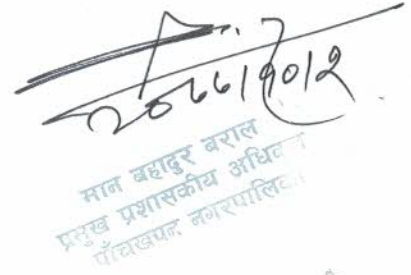 २०७७।१०।२
मान बहादुर बराल
प्रमुख प्रशासकीय अधिकृत
पाँचखपन नगरपालिका